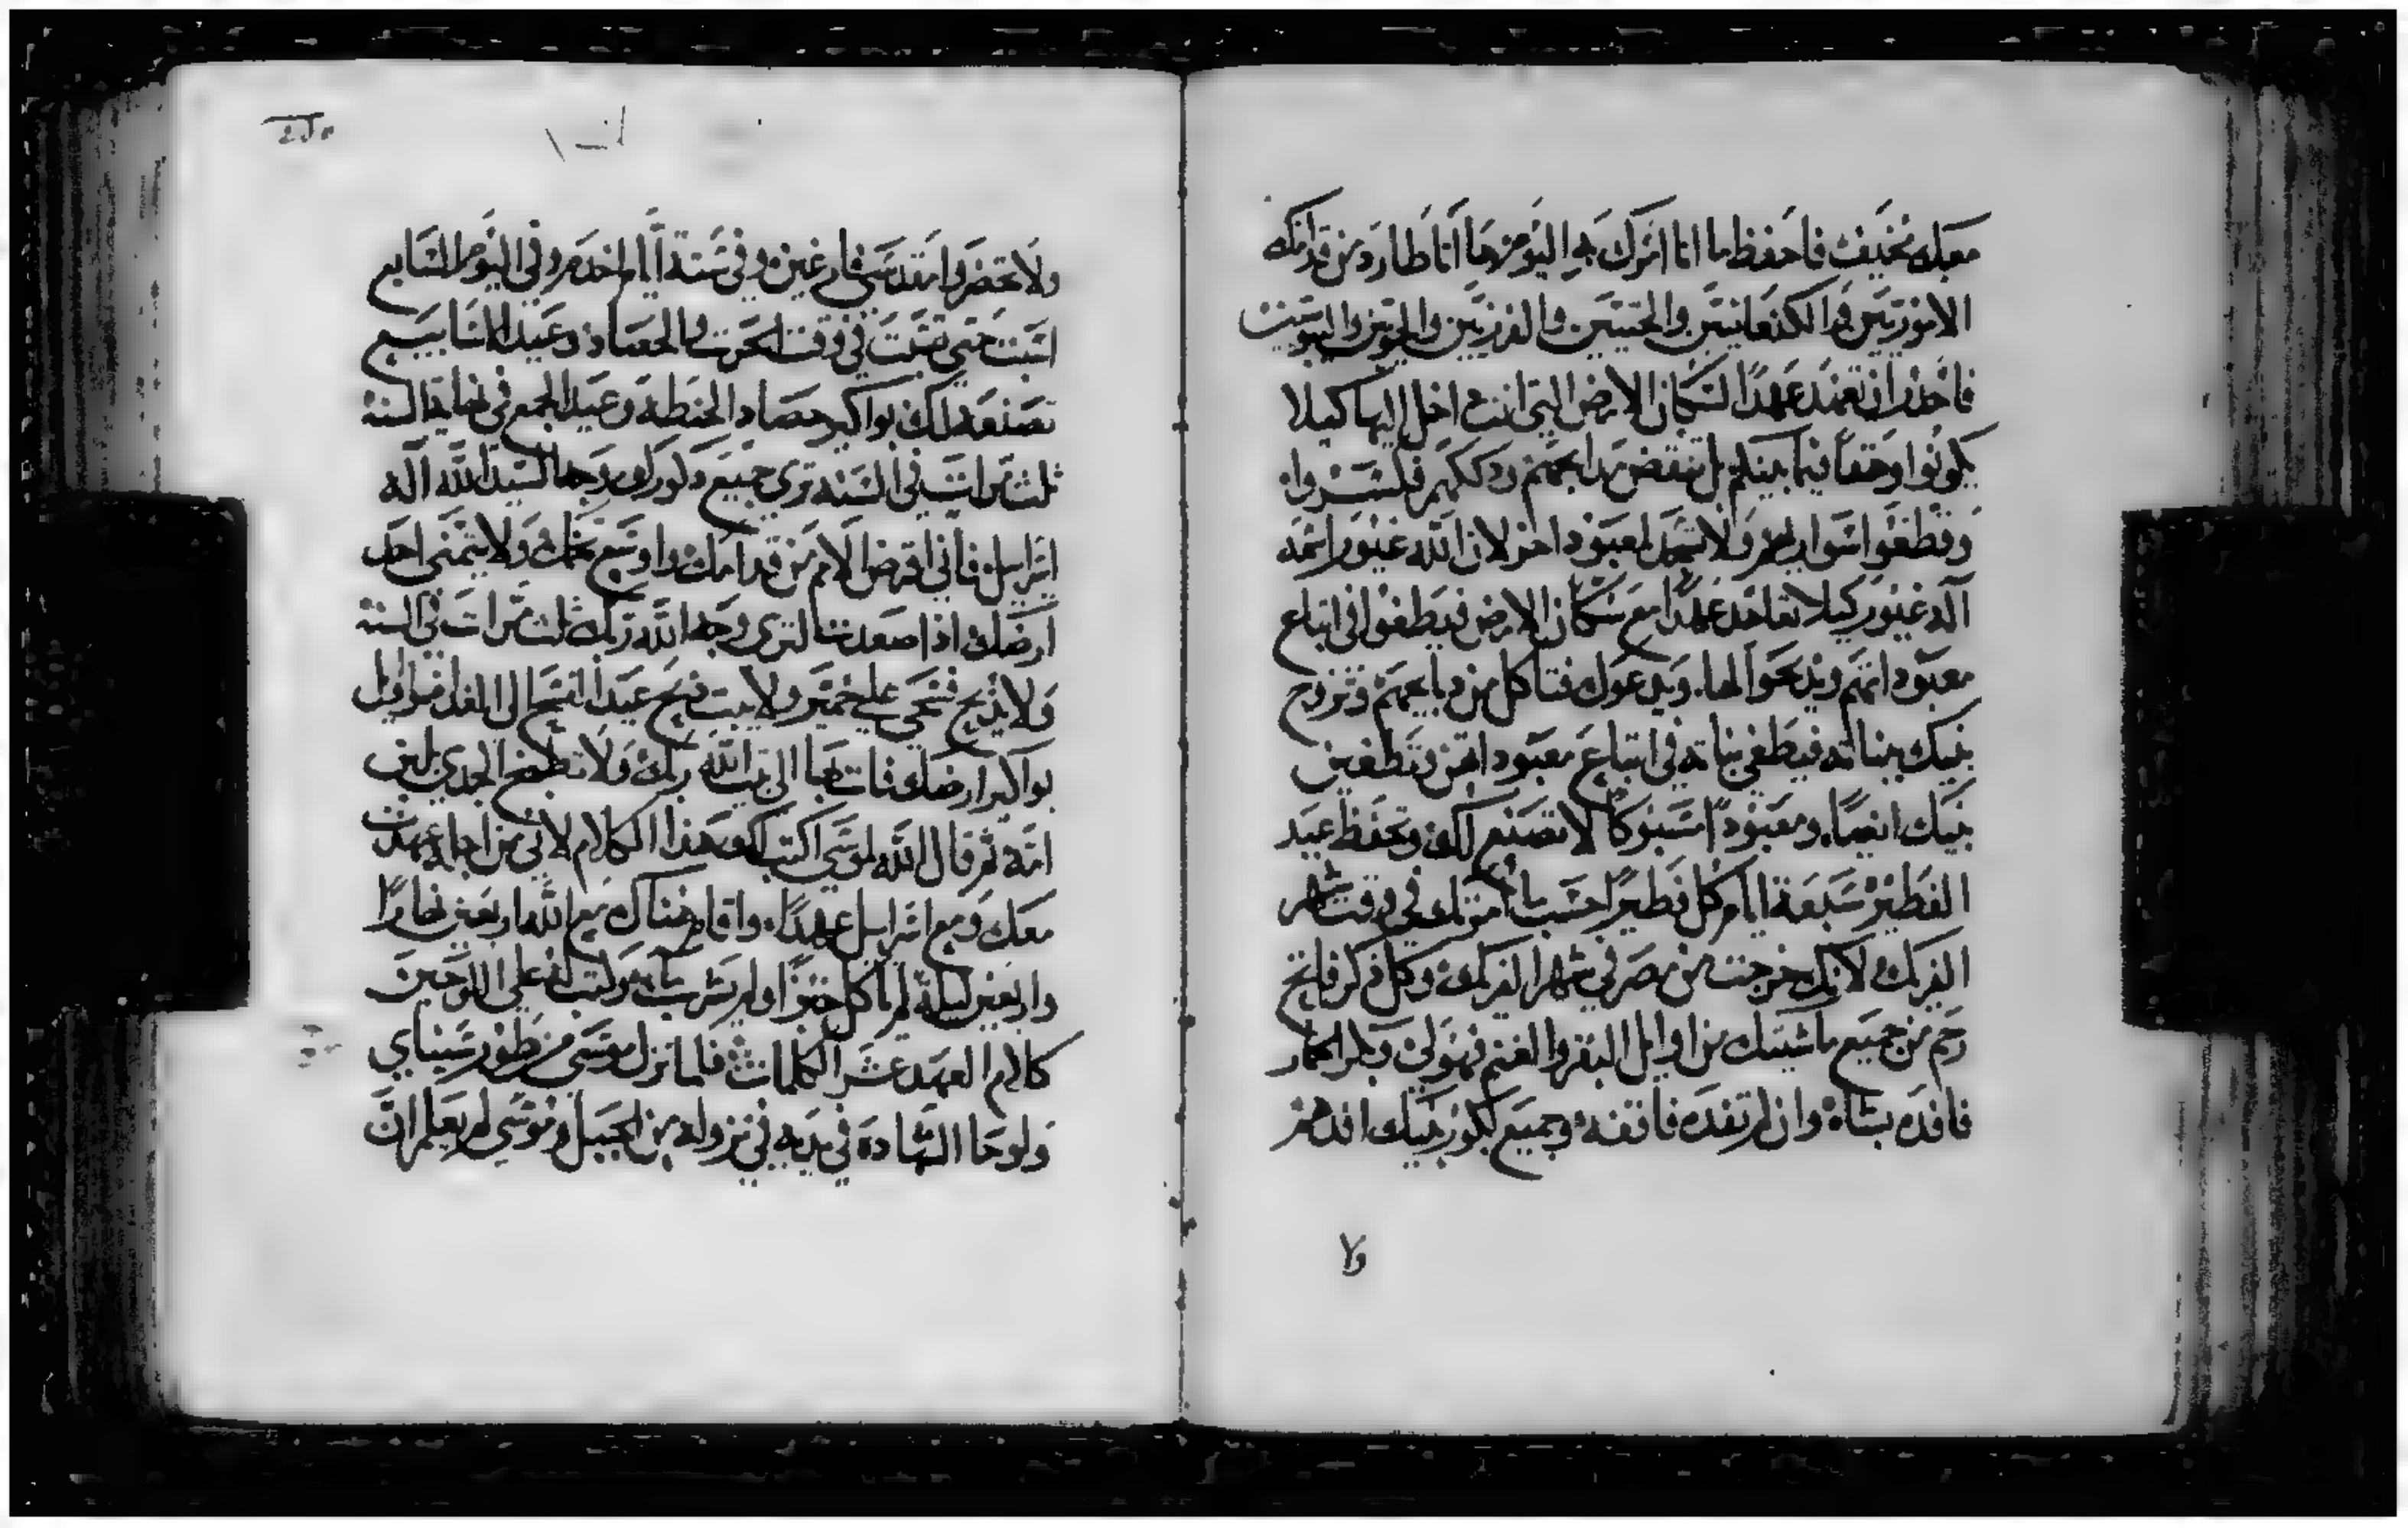 معك مخيف فاحفظ ما انا امرك به اليوم هاانا طارد من قدامك
الامورتين والكنعانيين والحيثيين والفرزيين والحويين واليبوسيين
فاحذر ان تعهد عهدًا لسكان الارض التي انت داخل اليها كيلا
يكونوا وهقا فيما بينكم بل تنقض مدابحهم ودككهم فكسروا
وقطعوا سواريهم ولا تسجد لمعبود اخر لان الله غيور اسمه
آله غيور كيلا تعاهد عهدًا مع سكان الارض فيطغوا في اتباع
معبوداتهم ويذبحوا لها ويدعوك فتاكل من دبايحهم وتزوج
بنيك ببناته فيطغي بناته في اتباع معبوداتهن وتطغين
بنيك ايضا ومعبودًا مسبوكًا لا تصنع لك وتحفظ عيد
الفطير سبعة ايام كل فطيرًا حسب ما امرتك في وقت شهر
الفريك لانك خرجت من مصر في شهر الفريك وكل ذكر فاتح
رحم من جميع ماشيتك من اوايل البقر والغنم فهو لي وبكر الحمار
فافده بشاة وان لم تفده فاقفه وجميع بكور بنيك افدهم
ولا
ولا تحضروا مقدسي فارغين وفي ستة ايام اخدم وفي اليوم السابع
اسبت حتى تسبت في وقت الحرث والحصاد وعيد الاسابيع
تصنعه لك بواكير حصاد الحنطة وعيد الجمع في نهاية السنة
ثلث مرات في السنة ترى جميع ذكورك وجه السيد الله آله
اسراييل فاني اقرض الامم من قدامك واوسع تخمك ولا يتمنى احد
ارضك اذا صعدت لترى وجه الله ربك ثلث مرات في السنة
ولا يذبح فسحي على خمير ولا يبت ذبح عيد الفسح الى الغداه واوايل
بواكير ارضك فات بها الى بيت الله ربك ولا تطبخ الجدي بلبن
امه ثم قال الله لموسى اكتب لك هذا الكلام لاني من اجله عهدت
معك ومع اسراييل عهدًا واقام هناك مع الله اربعين نهارًا
واربعين ليلة لم ياكل خبزًا ولم يشرب ماء وكتب له على اللوحين
كلام العهد عشر الكلمات فلما نزل موسى من طور سيناي
ولوحا الشهادة في يديه في نزوله من الجبل وموسى لم يعلم ان